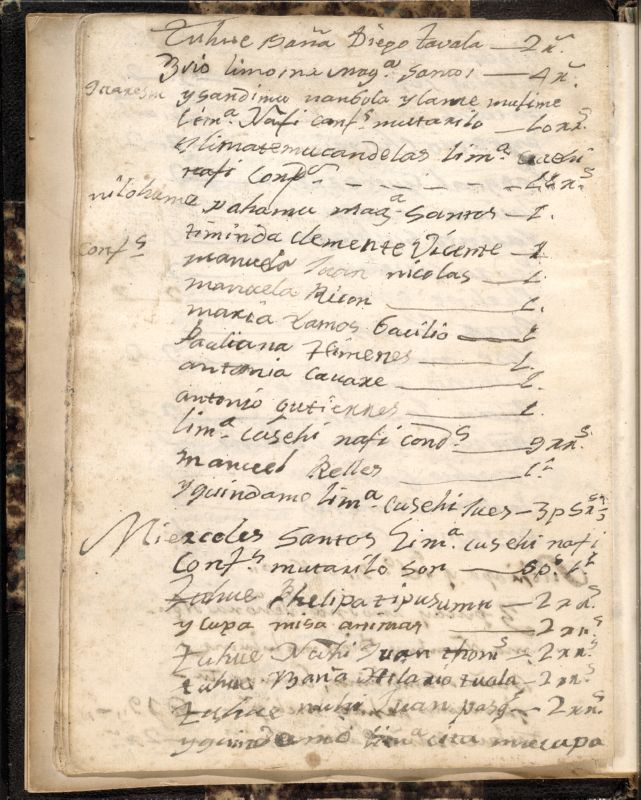 Tuhue Baña Diego tavala — 2 xˢ.
3vio limosna magᵃ Santos — 4 xˢ.
ysandimo naubola ylame mulime
limᵃ Nafi confˢ mutarilo — 60 xxˢ.
limatemucandelas limᵃ
nafi confˢ — — — — xˢ
pahamu magᵃ Santos — 1.
confˢ timinda clemente Vicente — 1
manuela Juan nicolas — 1.
manuela Ricon — 1.
maria Ramos bacilio — 1
Pauliana Ximenes — 1.
antonia cavaxe — 1.
antonio gutierres — 1.
limᵃ cusehi nafi confˢ — 9 xxˢ.
manuel Relles — 1.
yquindamo limᵃ cusehi lues — 3 pˢ xˢ
Miercoles Santos Limᵃ cusehi nafi
confˢ mutarilo son — 6 pˢ
Tuhue Phelipa tipusumu — 2 xxˢ.
y cupa misa animas — 2 xxˢ.
Tuhue Nahi Juan thomˢ — 2 xxˢ.
tuhue Baña Hilario tuala — 2 xxˢ.
Tuhue nuhi Juan pasqˡ — 2 xxˢ.
yquindamo limᵃ cita micapa